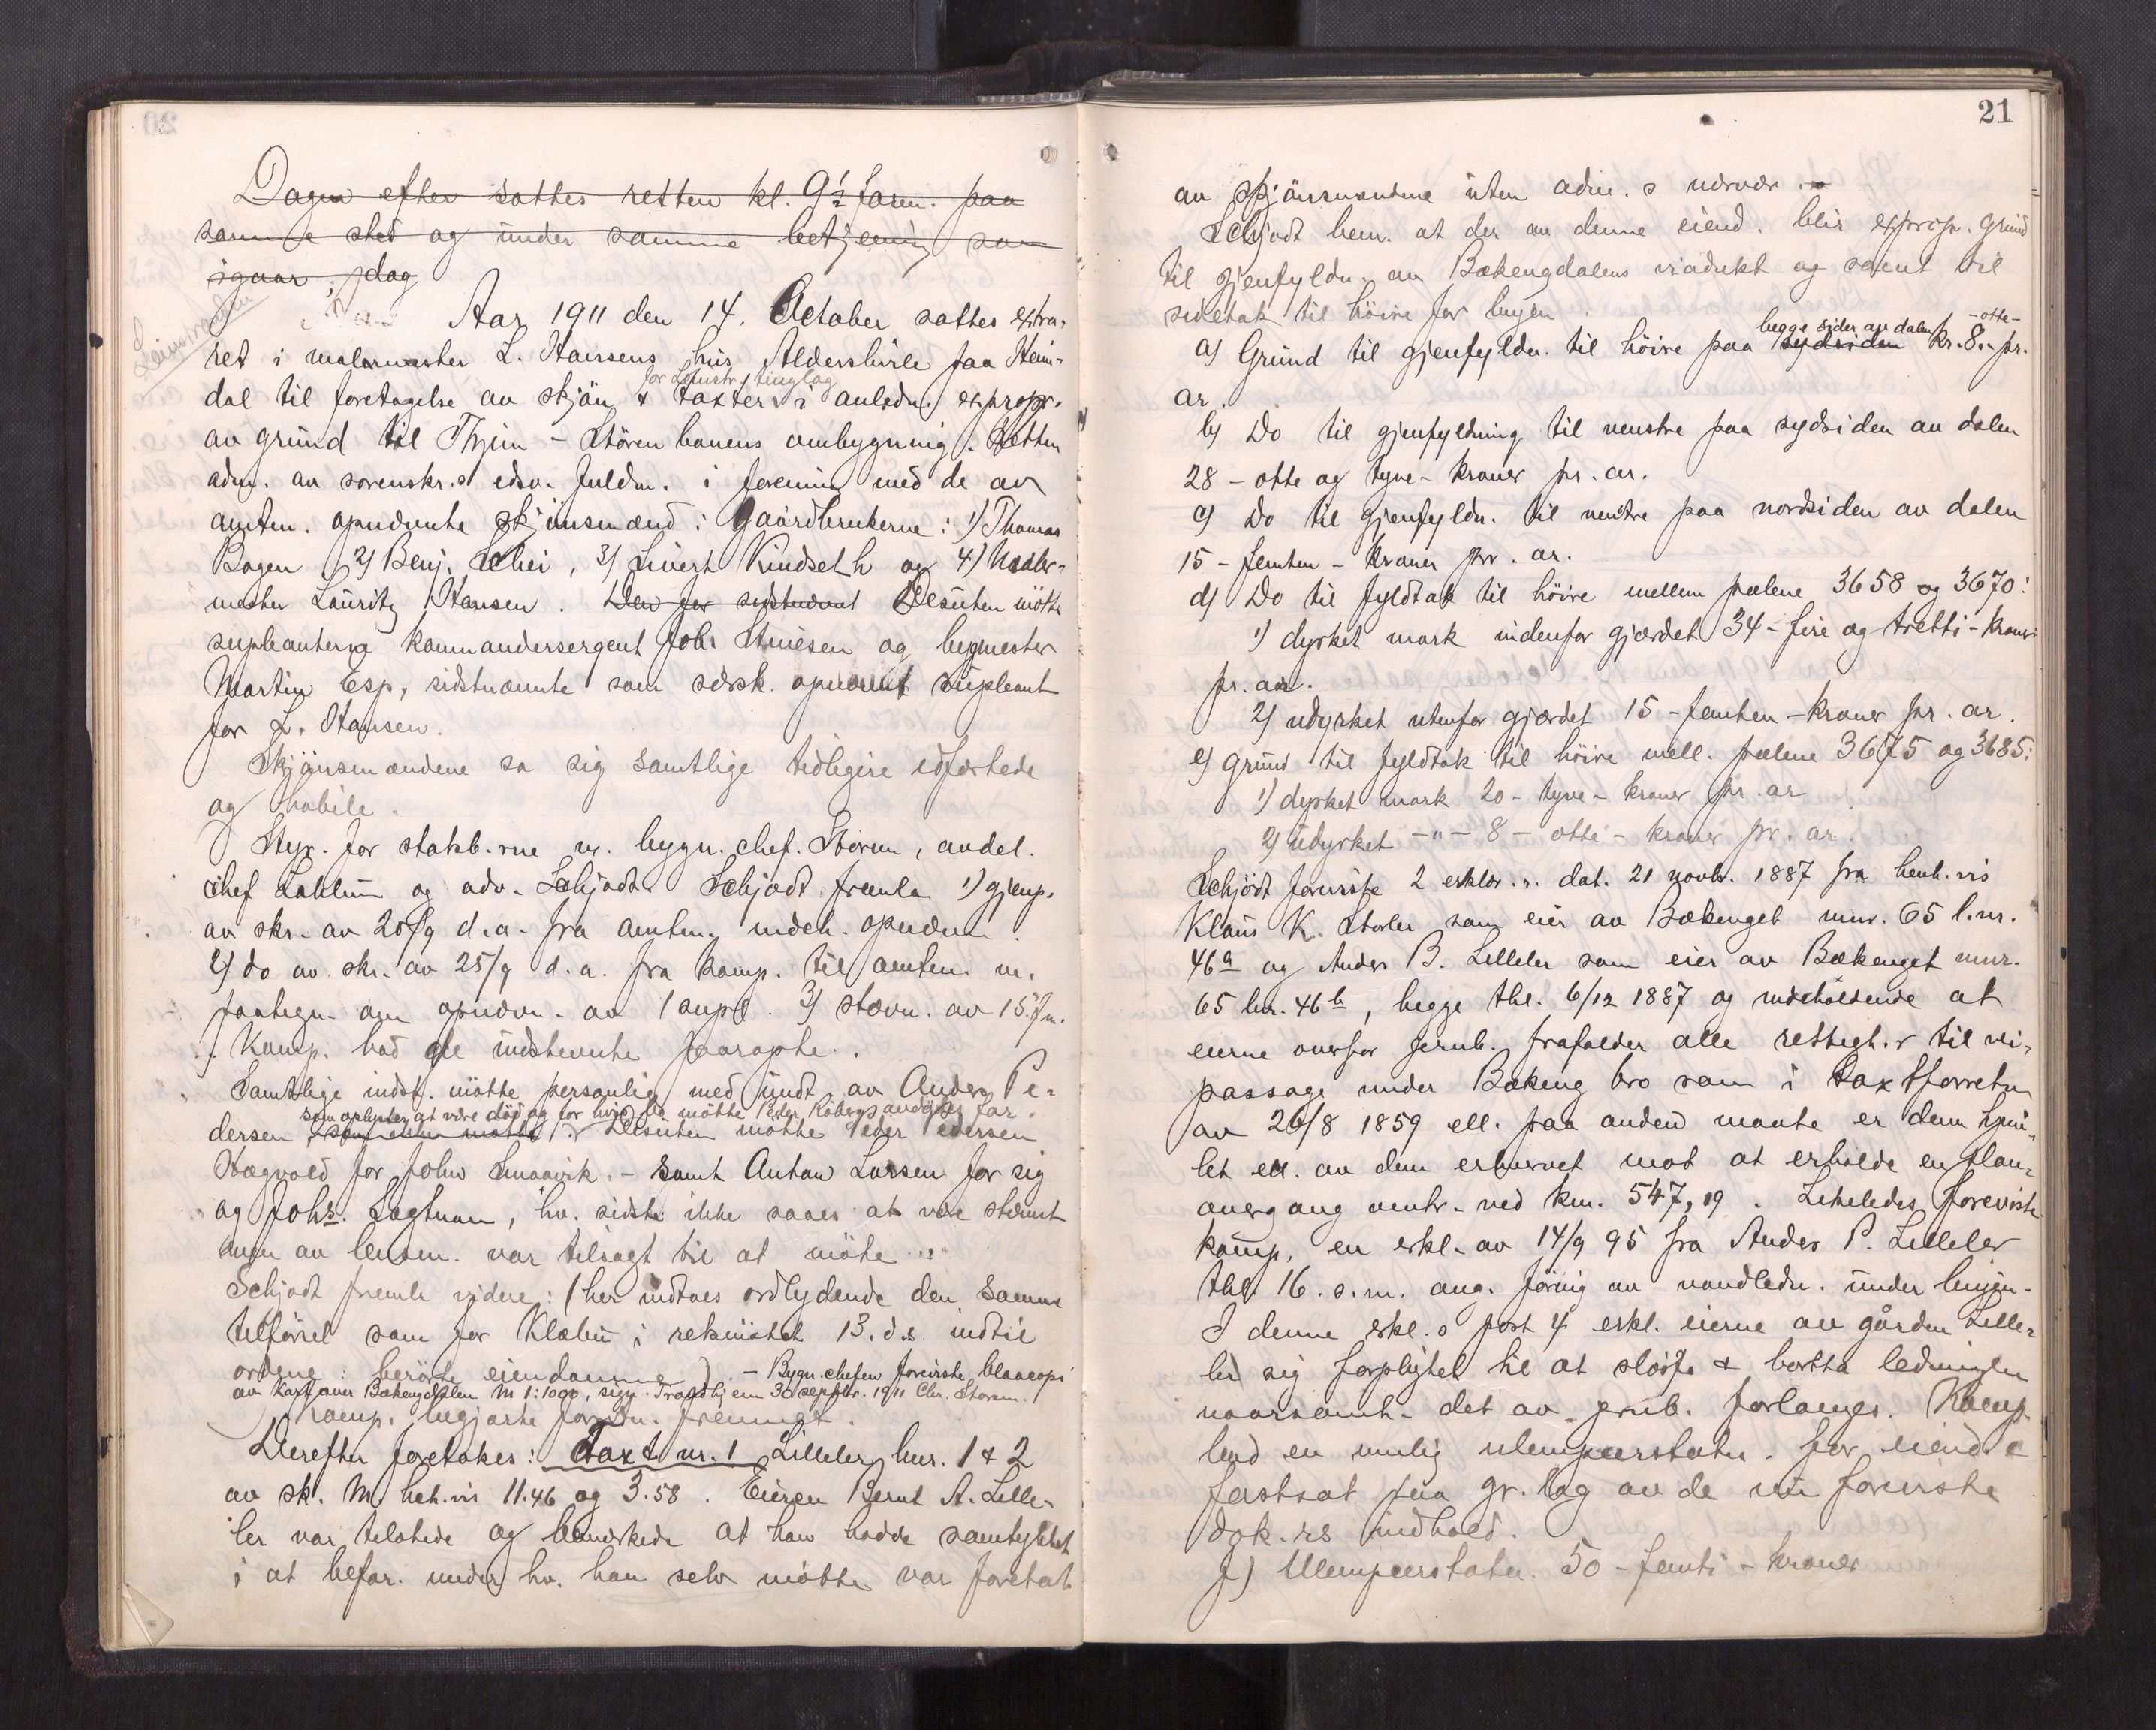 Dagen efter sattes retten kl. 9½ form. paa
samme sted og under samme betjening som
igaar; dag
Leinstranden
Aar 1911 den 14. October sattes extra-
ret i malermester L. Hansens hus Aldershvile paa Heim-
for Leinstr. tinglag
dal til foretagelse av skjön & taxter i anledn. exprop.
av grund til Thjem - Störenbanens ombygning. Retten
adm. av sorenskr.s edsv. fuldm. i forening med de av
amtm. opnævnte skjönsmænd: Gaardbrukerne: 1) Thomas
Bogen 2) Benj. Schei, 3) Sivert Kindseth og 4) Maler-
mester Lauritz Hansen. Den for sidstnævnt Desuten mötte
supleanterne kommandersergent Johs Struesen og bygmester
Martin Esp, sidstnævnte som særsk. opnævnt supleant
for L. Hansen.
Skjönsmændene sa sig samtlige tidligere edfæstede
og habile.
Styr. for statsb.rne m. bygn.chef. Storm, avdel.
chef Lahlum og adv. Schjödt. Schjödt fremla 1) gjenp.
av skr. av 20/9 d.a. fra amtm. indeh. opnævn.
2) do av skr. av 25/9 d.a. fra komp. til amtm. m.
paategn. om opnævn. av 1 supl. 3) stævn. av 15. f.m.
Komp. bad de indstevnte paaropte.
Samtlige indst. mötte personlig med undt. av Anders Pe-
som oplystes at være död og for hvem mötte Peder
dersen som mötte Desuten mötte Peder Pedersen
Hægvold for John Smaavik. - samt Anton Larsen for sig
og Johs. Sagtuen, hv. sidste ikke saaes at være stævnt
men av lensm. var tilsagt til at möte.
Schjödt fremla videre: (her indtaes ordlydende den samme
tilförsel som for Klæbu i retsmötet 13. d.s. indtil
ordene: berörte eiendomme). - Bygn.chefen foreviste blaacopi
av kart over Bækengdalen M 1:1000, sign. Trondhjem 30 septbr. 1911 Chr. Storm.
Komp. begjærte forretn. fremmet.
Derefter foretokes: Taxt nr. 1 Lilleler bnr. 1 & 2
av sk. M. hch.vis 11.46 og 3.58. Eieren Bernt A. Lille-
ler var tilstede og bemærkede at han hadde samtykket
i at befar. under hv. han selv mötte var foretat
21
av skjönsmændene uten adm.s nærvær.
Schjödt bem. at der av denne eiend. blir exprop. grund
til gjenfyldn. av Bækengdalens viadukt og samt til
sidetak til höire for linjen.
begge sider av dalen - otte -
a) Grund til gjenfyldn. til höire paa sydsiden kr. 8.- pr.
ar.
b) Do til gjenfyldning til venstre paa sydsiden av dalen
28 - otte og tyve - kroner pr. ar.
c) Do til gjenfyldn. til venstre paa nordsiden av dalen
15 - femten - kroner pr. ar.
d) Do til fyldtak til höire mellem pælene 3658 og 3670:
1) dyrket mark indenfor gjærdet 34 - fire og tretti - kroner
pr. ar.
2) udyrket utenfor gjærdet 15 - femten - kroner pr. ar.
e) Grund til fyldtak til höire mell. pælene 3675 og 3685:
1) dyrket mark 20 - tyve - kroner pr. ar
2) udyrket -"- 8 - otte - kroner pr. ar.
Schjödt foreviste 2 erklær.r. dat. 21 novbr. 1887 fra henh.vis
Klaus K. Storler som eier av Bækenget mnr. 65 l.nr.
46a og Anders B. Lilleler som eier av Bækenget mnr.
65 lnr. 46b, begge thl. 6/12 1887 og indeholdende at
eierne overfor jernb. frafalder alle rettigh.r til vei-
passage under Bækeng bro som i taxtforretn
av 26/8 1859 ell. paa anden maate er dem hjem-
let ell. av dem erhvervet mot at erholde en plan-
overgang omtr. ved km. 547,19. Likeledes foreviste
komp. en erkl. av 14/9 95 fra Anders P. Lilleler
thl. 16. s.m. ang. föring av vandledn. under linjen.
I denne erkl.s post 4 erkl. eierne av gården Lille-
ler sig forpligtet til at slöife & bortta ledningen
naarsomh. det av jernb. forlanges. Komp.
bad en mulig ulempeerstatn. for eiend.
fastsat paa gr.lag av de nu foreviste
dok.rs indhold.
f) Ulempeerstatn. 50 - femti - kroner